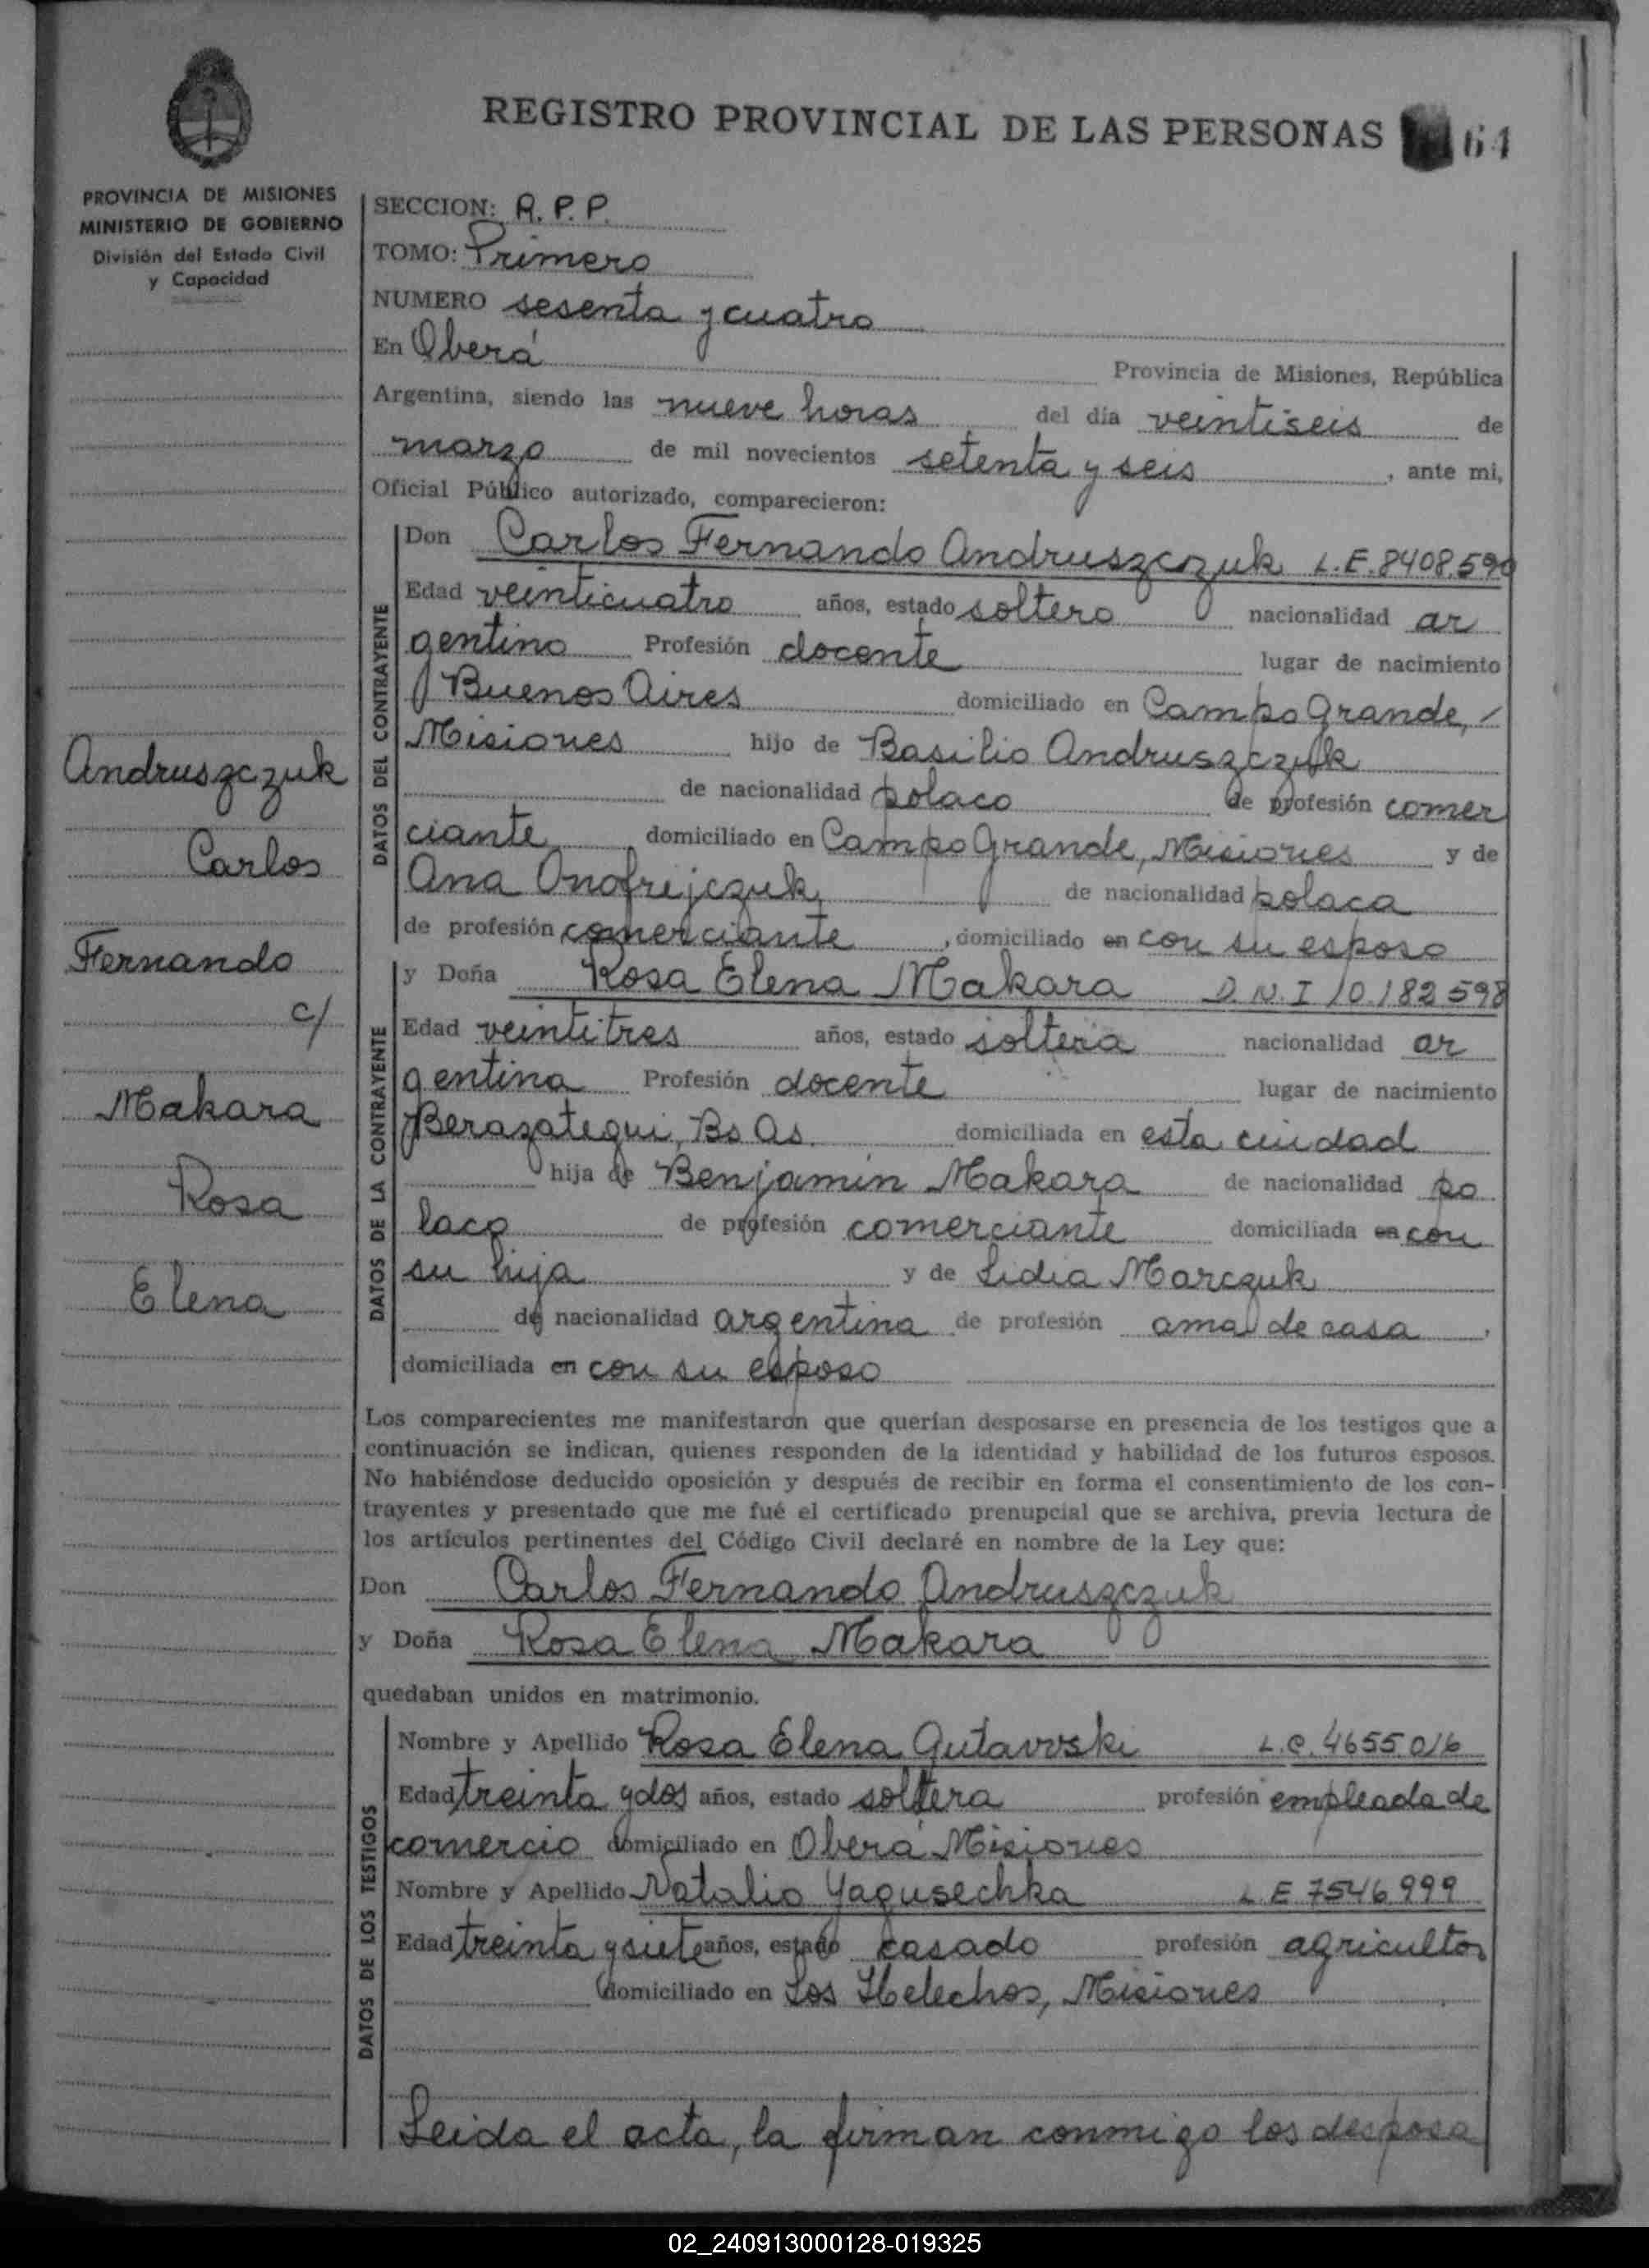 REGISTRO PROVINCIAL DE LAS PERSONAS 64
PROVINCIA DE MISIONES
MINISTERIO DE GOBIERNO
División del Estado Civil
y Capacidad
SECCION: R. P. P.
TOMO: Primero
NUMERO sesenta y cuatro
En Oberá Provincia de Misiones, República
Argentina, siendo las nueve horas del día veintiseis de
marzo de mil novecientos setenta y seis, ante mi,
Oficial Público autorizado, comparecieron:
DATOS DEL CONTRAYENTE
Don Carlos Fernando Andruszczuk L.E. 8408.590
Edad veinticuatro años, estado soltero nacionalidad ar
gentino Profesión docente lugar de nacimiento
Buenos Aires domiciliado en Campo Grande, /
Misiones hijo de Basilio Andruszczuk
de nacionalidad polaco de profesión comer
ciante domiciliado en Campo Grande, Misiones y de
Ana Onofrejczuk, de nacionalidad polaca
de profesión comerciante, domiciliado en con su esposo
DATOS DE LA CONTRAYENTE
y Doña Rosa Elena Makara D.N.I 10.182 598
Edad veintitres años, estado soltera nacionalidad ar
gentina Profesión docente lugar de nacimiento
Berazategui, Bs As. domiciliada en esta ciudad
hija de Benjamin Makara de nacionalidad po
laco de profesión comerciante domiciliada en con
su hija y de Lidia Marczuk
de nacionalidad argentina de profesión ama de casa,
domiciliada en con su esposo
Andruszczuk
Carlos
Fernando
c/
Makara
Rosa
Elena
Los comparecientes me manifestaron que querían desposarse en presencia de los testigos que a
continuación se indican, quienes responden de la identidad y habilidad de los futuros esposos.
No habiéndose deducido oposición y después de recibir en forma el consentimiento de los con-
trayentes y presentado que me fué el certificado prenupcial que se archiva, previa lectura de
los artículos pertinentes del Código Civil declaré en nombre de la Ley que:
Don Carlos Fernando Andruszczuk
y Doña Rosa Elena Makara
quedaban unidos en matrimonio.
DATOS DE LOS TESTIGOS
Nombre y Apellido Rosa Elena Gutavvski L.C. 4655016
Edad treinta y dos años, estado soltera profesión empleada de
comercio domiciliado en Oberá Misiones
Nombre y Apellido Natalio Yagusechka L E 7546.999
Edad treinta y siete años, estado casado profesión agricultor
domiciliado en Los Helechos, Misiones
Leida el acta, la firman conmigo los desposa
02_240913000128-019325